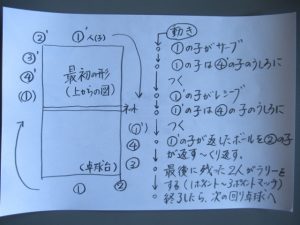 ②' ①' 人(子)
③'
④'
(①)
最初の形
(上からの図)
ネット
(①')
④
③
(卓球台)
①
②
動き
①の子がサーブ
①の子は④の子のうしろに
つく
①'の子がレシーブ
①'の子は④の子のうしろに
つく
①'の子が返したボールを②の子
が返す〜くり返す。
最後に残った2人がラリーを
する(1ポイント〜3ポイントマッチ)
終了したら、次の回り卓球へ